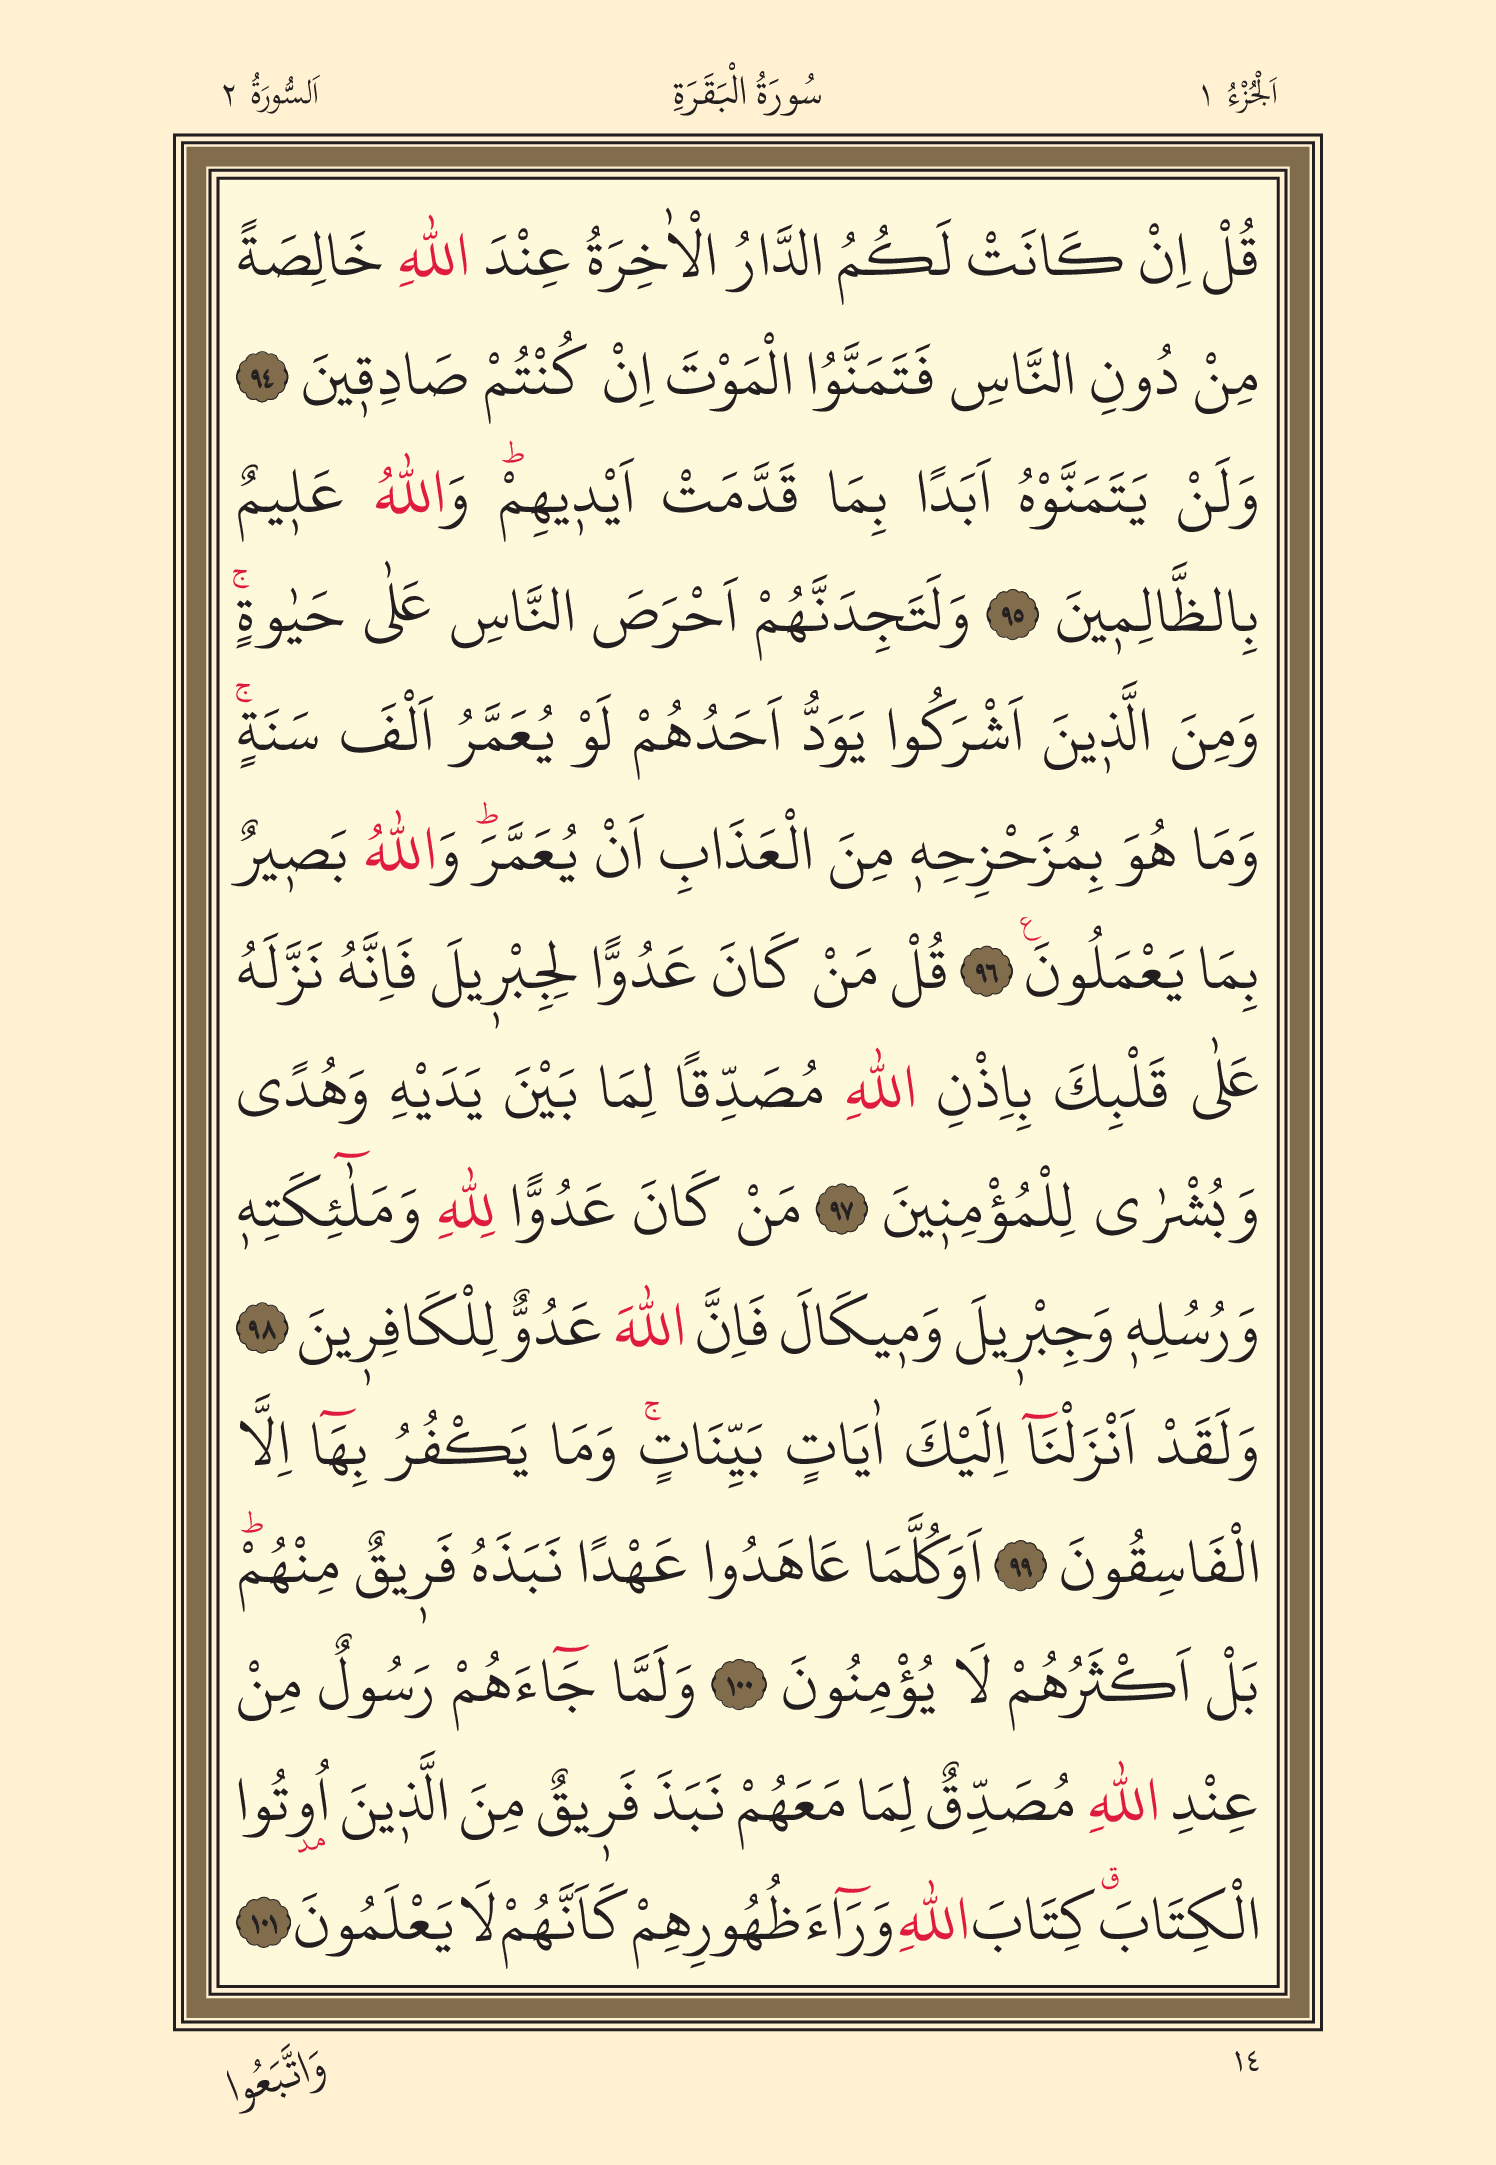 اَلْجُزْءُ ١
سُورَةُ الْبَقَرَةِ
اَلسُّورَةُ ٢
قُلْ اِنْ كَانَتْ لَكُمُ الدَّارُ الْاٰخِرَةُ عِنْدَ اللّٰهِ خَالِصَةً
مِنْ دُونِ النَّاسِ فَتَمَنَّوُا الْمَوْتَ اِنْ كُنْتُمْ صَادِق۪ينَ ﴿٩٤﴾
وَلَنْ يَتَمَنَّوْهُ اَبَدًا بِمَا قَدَّمَتْ اَيْد۪يهِمْۜ وَاللّٰهُ عَل۪يمٌ
بِالظَّالِم۪ينَ ﴿٩٥﴾ وَلَتَجِدَنَّهُمْ اَحْرَصَ النَّاسِ عَلٰى حَيٰوةٍۚ
وَمِنَ الَّذ۪ينَ اَشْرَكُوا يَوَدُّ اَحَدُهُمْ لَوْ يُعَمَّرُ اَلْفَ سَنَةٍۚ
وَمَا هُوَ بِمُزَحْزِحِه۪ مِنَ الْعَذَابِ اَنْ يُعَمَّرَۜ وَاللّٰهُ بَص۪يرٌ
بِمَا يَعْمَلُونَ۟ ﴿٩٦﴾ قُلْ مَنْ كَانَ عَدُوًّا لِجِبْر۪يلَ فَاِنَّهُ نَزَّلَهُ
عَلٰى قَلْبِكَ بِاِذْنِ اللّٰهِ مُصَدِّقًا لِمَا بَيْنَ يَدَيْهِ وَهُدًى
وَبُشْرٰى لِلْمُؤْمِن۪ينَ ﴿٩٧﴾ مَنْ كَانَ عَدُوًّا لِلّٰهِ وَمَلٰٓئِكَتِه۪
وَرُسُلِه۪ وَجِبْر۪يلَ وَم۪يكَالَ فَاِنَّ اللّٰهَ عَدُوٌّ لِلْكَافِر۪ينَ ﴿٩٨﴾
وَلَقَدْ اَنْزَلْنَٓا اِلَيْكَ اٰيَاتٍ بَيِّنَاتٍۚ وَمَا يَكْفُرُ بِهَٓا اِلَّا
الْفَاسِقُونَ ﴿٩٩﴾ اَوَكُلَّمَا عَاهَدُوا عَهْدًا نَبَذَهُ فَر۪يقٌ مِنْهُمْۜ
بَلْ اَكْثَرُهُمْ لَا يُؤْمِنُونَ ﴿١٠٠﴾ وَلَمَّا جَٓاءَهُمْ رَسُولٌ مِنْ
عِنْدِ اللّٰهِ مُصَدِّقٌ لِمَا مَعَهُمْ نَبَذَ فَر۪يقٌ مِنَ الَّذ۪ينَ اُو۫تُوا
الْكِتَابَۗ كِتَابَ اللّٰهِ وَرَٓاءَ ظُهُورِهِمْ كَاَنَّهُمْ لَا يَعْلَمُونَ ﴿١٠١﴾
١٤
وَاتَّبَعُوا